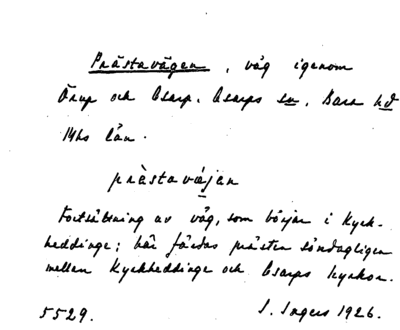 Prästavägen, väg igenom
Örup och Esarp, Esarps sn, Bara hd
Mhs län.
prästavájen
Fortsättning av väg, som börjar i Kyrk-
heddinge; här färdas prästen söndagligen
mellan Kyrkheddinge och Esarps kyrkor.
5529. S. Ingers 1926.